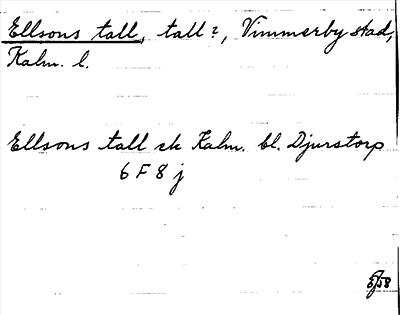 Ellsons tall, tall?, Vimmerby stad,
Kalm. l.
Ellsons tall ek Kalm. bl. Djurstorp
6 F 8 j